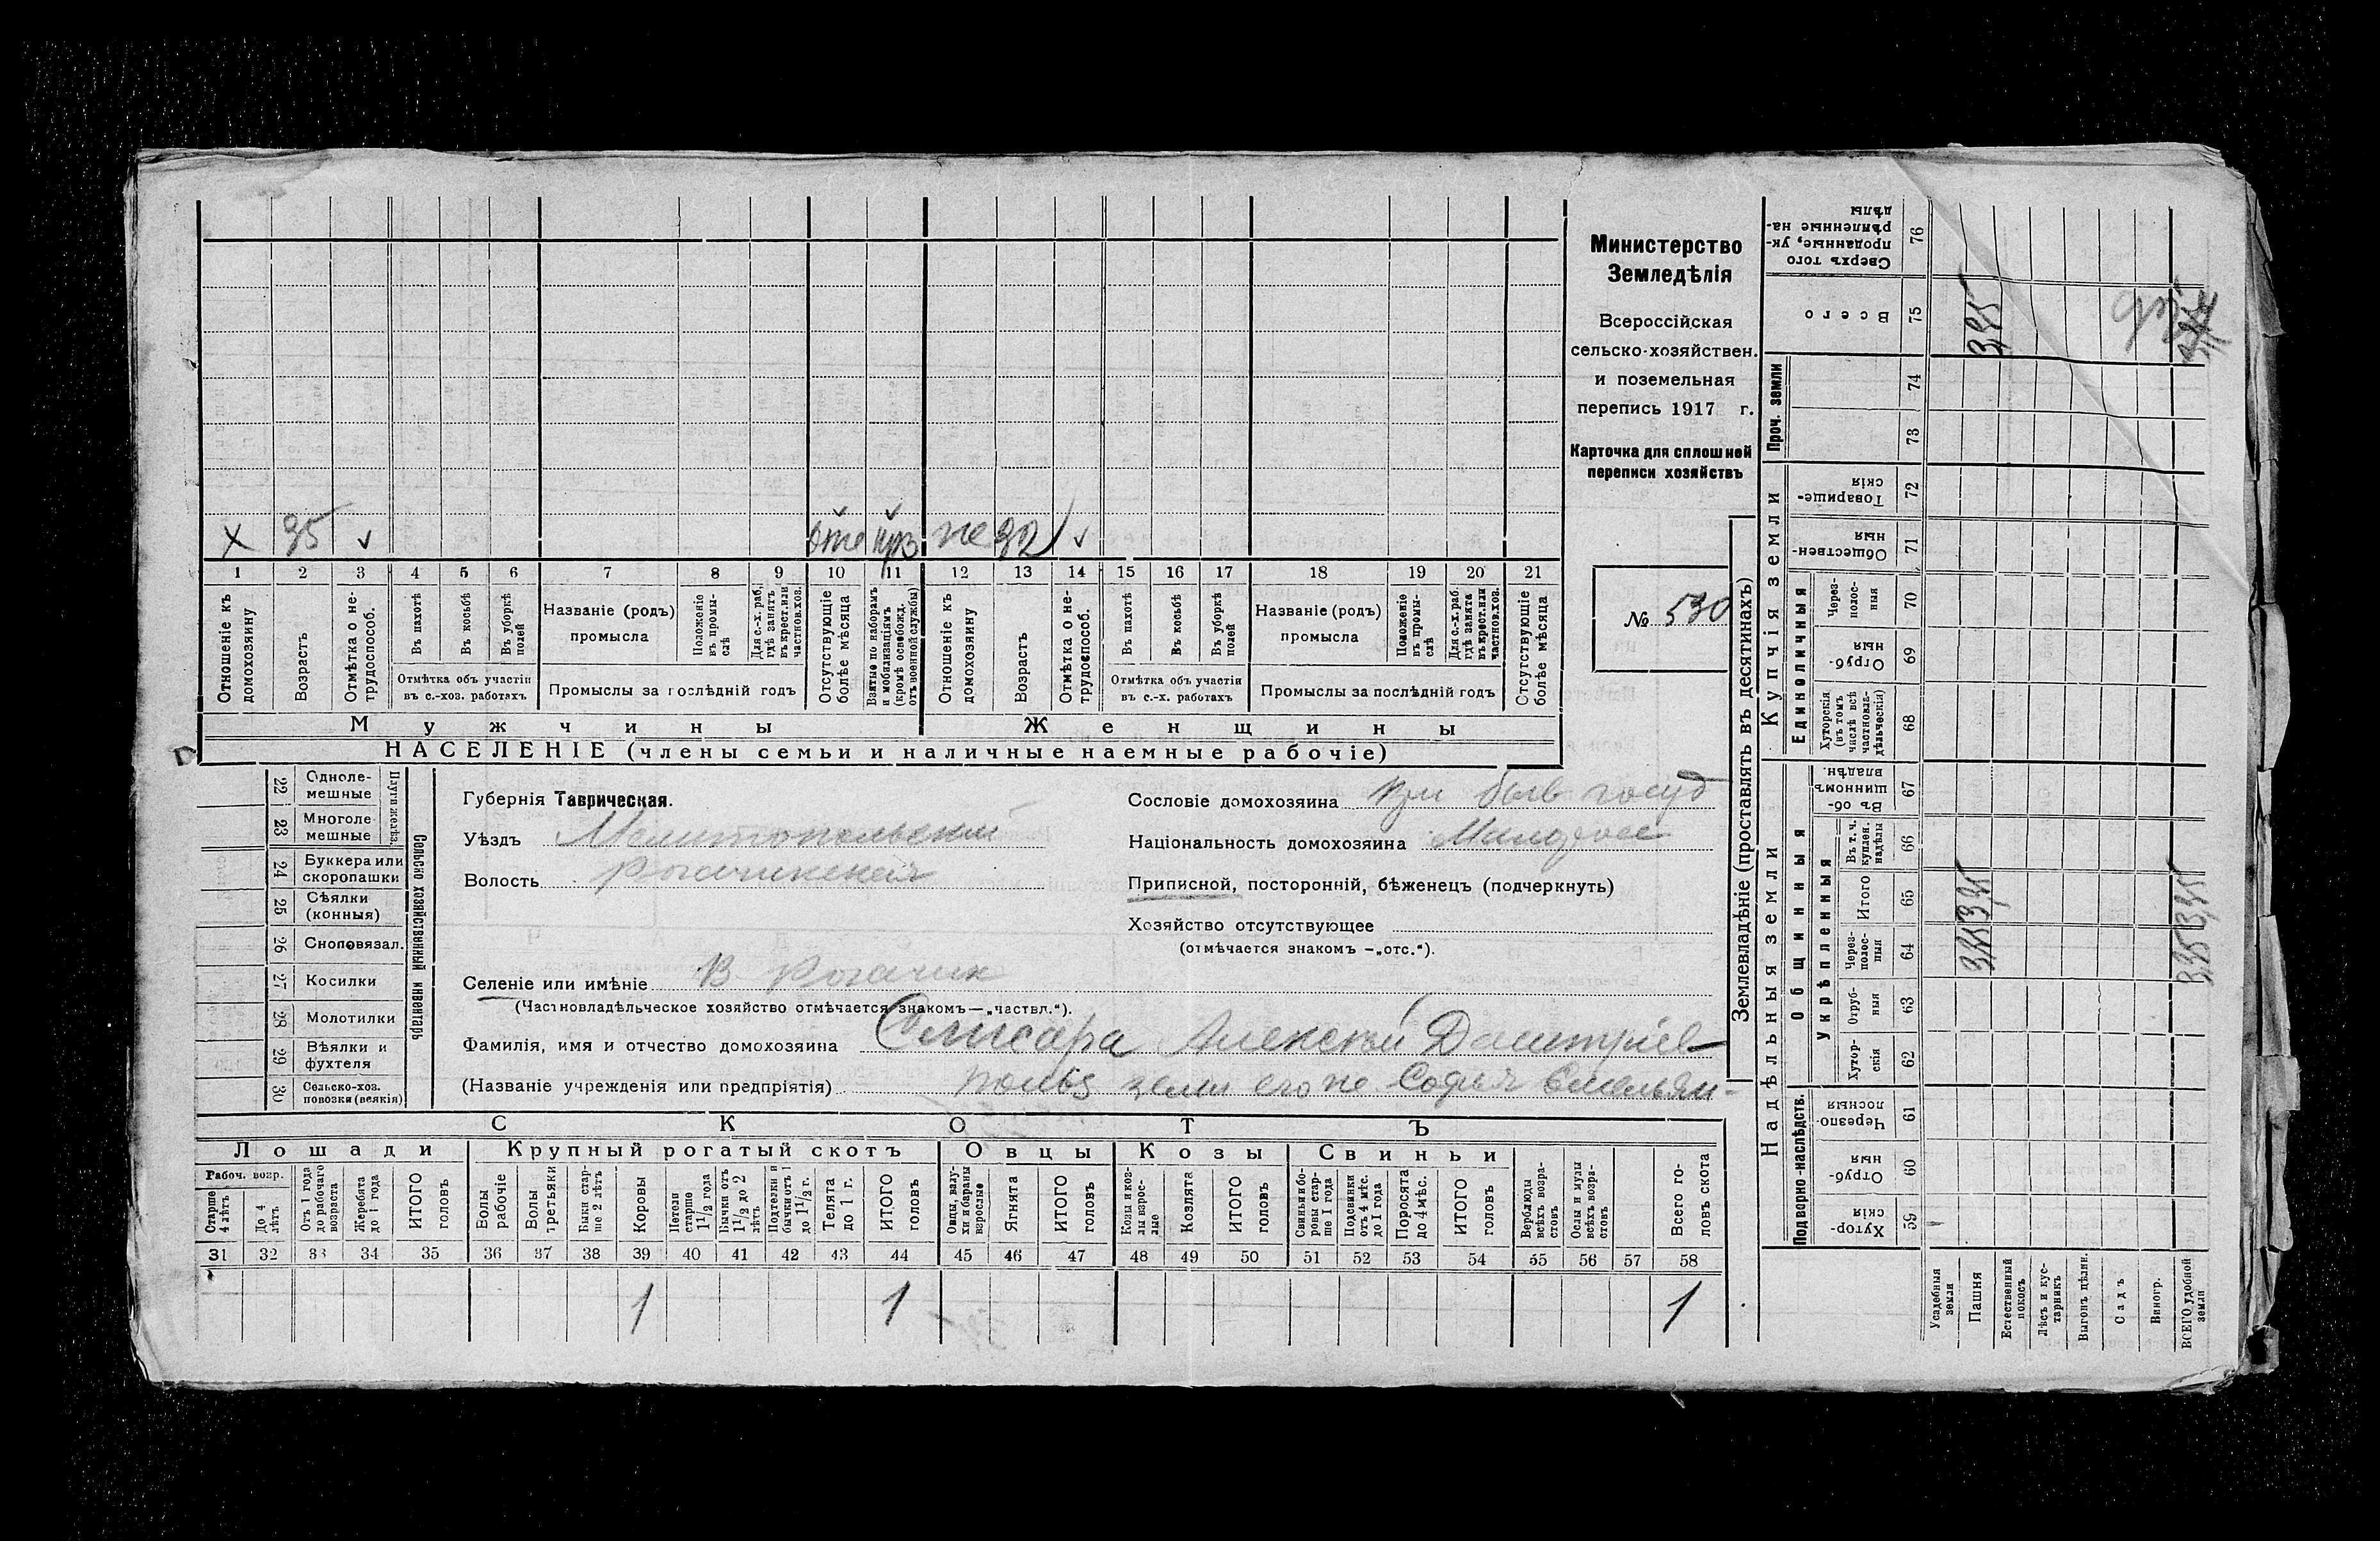 Министерство
Земледѣлія
Всероссійская
сельско-хозяйствен.
и поземельная
перепись 1917 г.
Карточка для сплошной
переписи хозяйствъ
№ 530
х 35 ✓ отс прз же 32 ✓
1 2 3 4 5 6 7 8 9 10 11 12 13 14 15 16 17 18 19 20 21
Отношеніе къ домохозяину
Возрастъ
Отмѣтка о нетрудоспособ.
Въ пахотѣ
Въ косьбѣ
Въ уборкѣ полей
Отмѣтка объ участіи
въ с.-хоз. работахъ
Названіе (родъ)
промысла
Положеніе въ промыслѣ
Для с.-х. раб. гдѣ занятъ въ крест. или частнов. хоз.
Промыслы за послѣдній годъ
Отсутствующіе болѣе мѣсяца
Взятые по наборамъ и мобилизаціямъ (кромѣ освобожд. отъ военной службы)
Отношеніе къ домохозяину
Возрастъ
Отмѣтка о нетрудоспособ.
Въ пахотѣ
Въ косьбѣ
Въ уборкѣ полей
Отмѣтка объ участіи
въ с.-х. работахъ
Названіе (родъ)
промысла
Положеніе въ промыслѣ
Для с.-х. раб. гдѣ занята въ крест. или частнов. хоз.
Промыслы за послѣдній годъ
Отсутствующіе болѣе мѣсяца
Мужчины Женщины
НАСЕЛЕНІЕ (члены семьи и наличные наемные рабочіе)
Сельско хозяйственный инвентарь
22 Однолемешные
23 Многолемешные
24 Буккера или скоропашки
25 Сѣялки (конныя)
26 Сноповязал.
27 Косилки
28 Молотилки
29 Вѣялки и фухтеля
30 Сельско-хоз. повозки (всякія)
Губернія Таврическая.
Уѣздъ Мелитопольскій
Волость Рогачикская
Сословіе домохозяина кр быв госуд
Національность домохозяина
Приписной, посторонній, бѣженецъ (подчеркнуть)
Хозяйство отсутствующее
(отмѣчается знакомъ —„отс.“).
Селеніе или имѣніе В Рогачик
(Частновладѣльческое хозяйство отмѣчается знакомъ—„частвл.“).
Фамилія, имя и отчество домохозяина Слисара Алексѣй Дмитріев
(Названіе учрежденія или предпріятія) земли его же Софья Емельян-
СКОТЪ
Лошади Крупный рогатый скотъ Овцы Козы Свиньи
Рабоч. возр.
Старше 4 лѣтъ
До 4 лѣтъ
Отъ 1 года до рабочаго возраста
Жеребята до 1 года
ИТОГО головъ
Волы рабочіе
Волы третьяки
Быки старше 2 лѣтъ
Коровы
Нетели старше 1 1/2 года
Бычки отъ 1 1/2 до 2 лѣтъ
Подтелки и бычки отъ 1 до 1 1/2 г.
Телята до 1 г.
ИТОГО головъ
Овцы, валухи и бараны взрослые
Ягнята
ИТОГО головъ
Козы и козлы взрослые
Козлята
ИТОГО головъ
Свиньи и боровы старше 1 года
Подсвинки отъ 4 мѣс. до 1 года
Поросята до 4 мѣс.
ИТОГО головъ
Верблюды всѣхъ возрастовъ
Ослы и мулы всѣхъ возрастовъ
Всего головъ скота
31 32 33 34 35 36 37 38 39 40 41 42 43 44 45 46 47 48 49 50 51 52 53 54 55 56 57 58
1 1 1
Землевладѣніе (проставлять въ десятинахъ)
Надѣльныя земли
Купчія земли
Проч. земли
Подворно-наслѣдств.
Общинныя
Укрѣпленныя
Единоличныя
Сверхъ того проданные, укрѣпленные надѣлы 76
Всего 75 3,35
74
73
Товарищескія 72
Общественныя 71
Черезполосныя 70
Отрубныя 69
Хуторскія (въ томъ числѣ всѣ частновладѣльческія) 68
Въ общинномъ владѣн. 67
Въ т. ч. куплен. надѣлы 66
Итого 65 3,35 3,35
Черезполосныя 64 3,35 3,35
Отрубныя 63
Хуторскія 62
Черезполосныя 61
Отрубныя 60
Хуторскія 59
Усадебныя земли
Пашня
Естественный покосъ
Лѣсъ и кустарникъ
Выгонъ цѣлин.
Садъ
Виногр.
ВСЕГО удобной земли